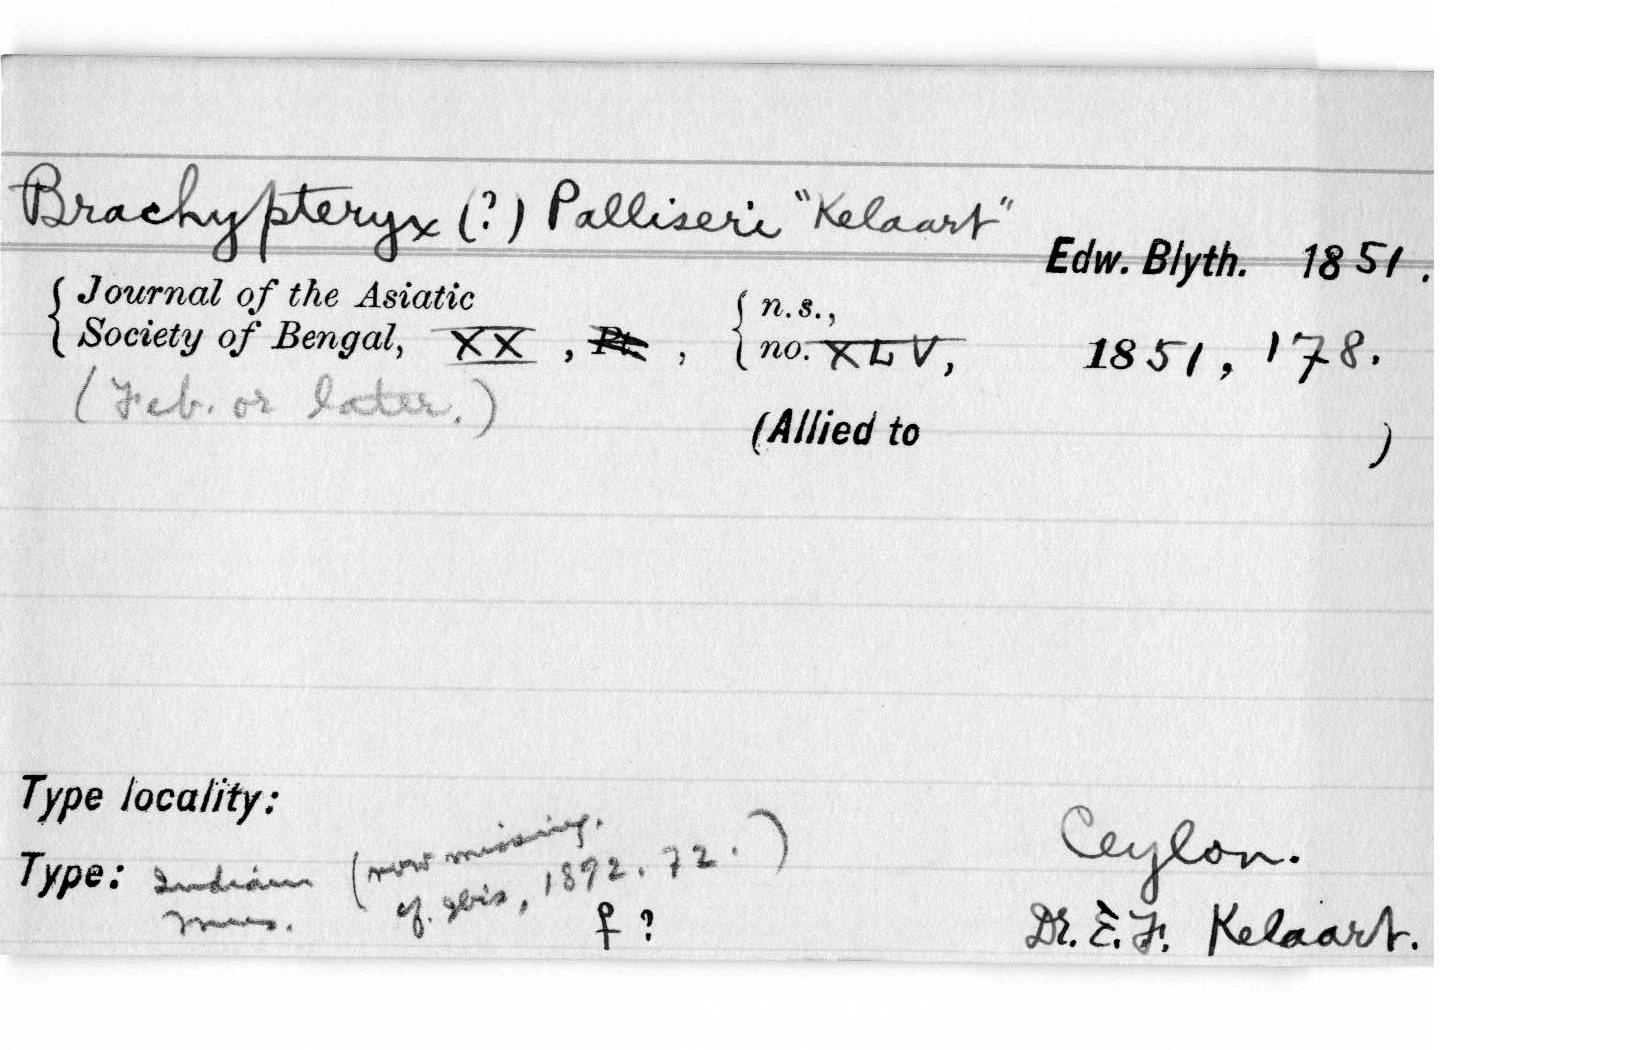 Brachypteryx (?) Palliseri "Kelaart"
Edw. Blyth. 1851.
{ Journal of the Asiatic
Society of Bengal, XX, Pt. , { n.s.,
no. XLV, 1851, 178.
(Feb. or later.)
(Allied to )
Type locality: Ceylon.
Type: Indian Mus. (now missing.
cf. Ibis, 1892. 72.)
♀ ? Dr. E. F. Kelaart.